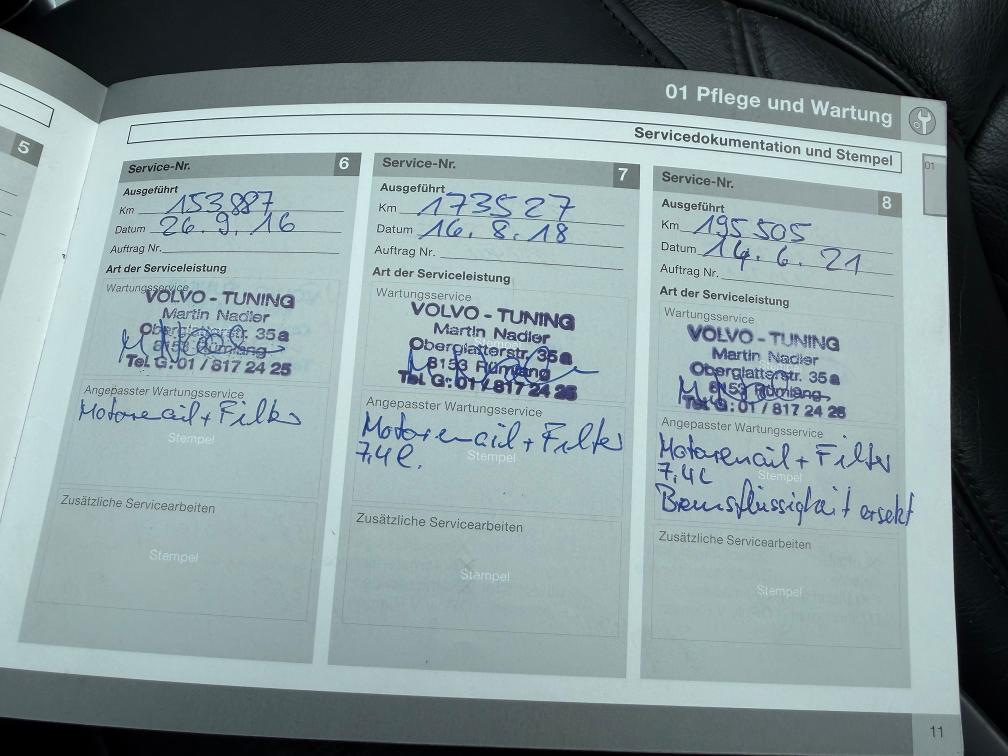 01 Pflege und Wartung
Servicedokumentation und Stempel
01
5
Service-Nr. 6
Ausgeführt
Km 153887
Datum 26.9.16
Auftrag Nr.
Art der Serviceleistung
Wartungsservice
VOLVO - TUNING
Martin Nadler
Oberglatterstr. 35a
8153 Rümlang
Tel. G: 01 / 817 24 25
Angepasster Wartungsservice
Motorenoil + Filter
Stempel
Zusätzliche Servicearbeiten
Stempel
Service-Nr. 7
Ausgeführt
Km 173527
Datum 16.8.18
Auftrag Nr.
Art der Serviceleistung
Wartungsservice
VOLVO - TUNING
Martin Nadler
Stempel
Oberglatterstr. 35a
8153 Rümlang
Tel. G: 01 / 817 24 25
Angepasster Wartungsservice
Motorenoil + Filter
7,4l.
Stempel
Zusätzliche Servicearbeiten
Stempel
Service-Nr. 8
Ausgeführt
Km 195505
Datum 14.6.21
Auftrag Nr.
Art der Serviceleistung
Wartungsservice
VOLVO - TUNING
Martin Nadler
Oberglatterstr. 35a
8153 Rümlang
Tel. G: 01 / 817 24 25
Angepasster Wartungsservice
Motorenoil + Filter
7,4l
Stempel
Bremsflüssigkeit ersetzt
Zusätzliche Servicearbeiten
Stempel
11